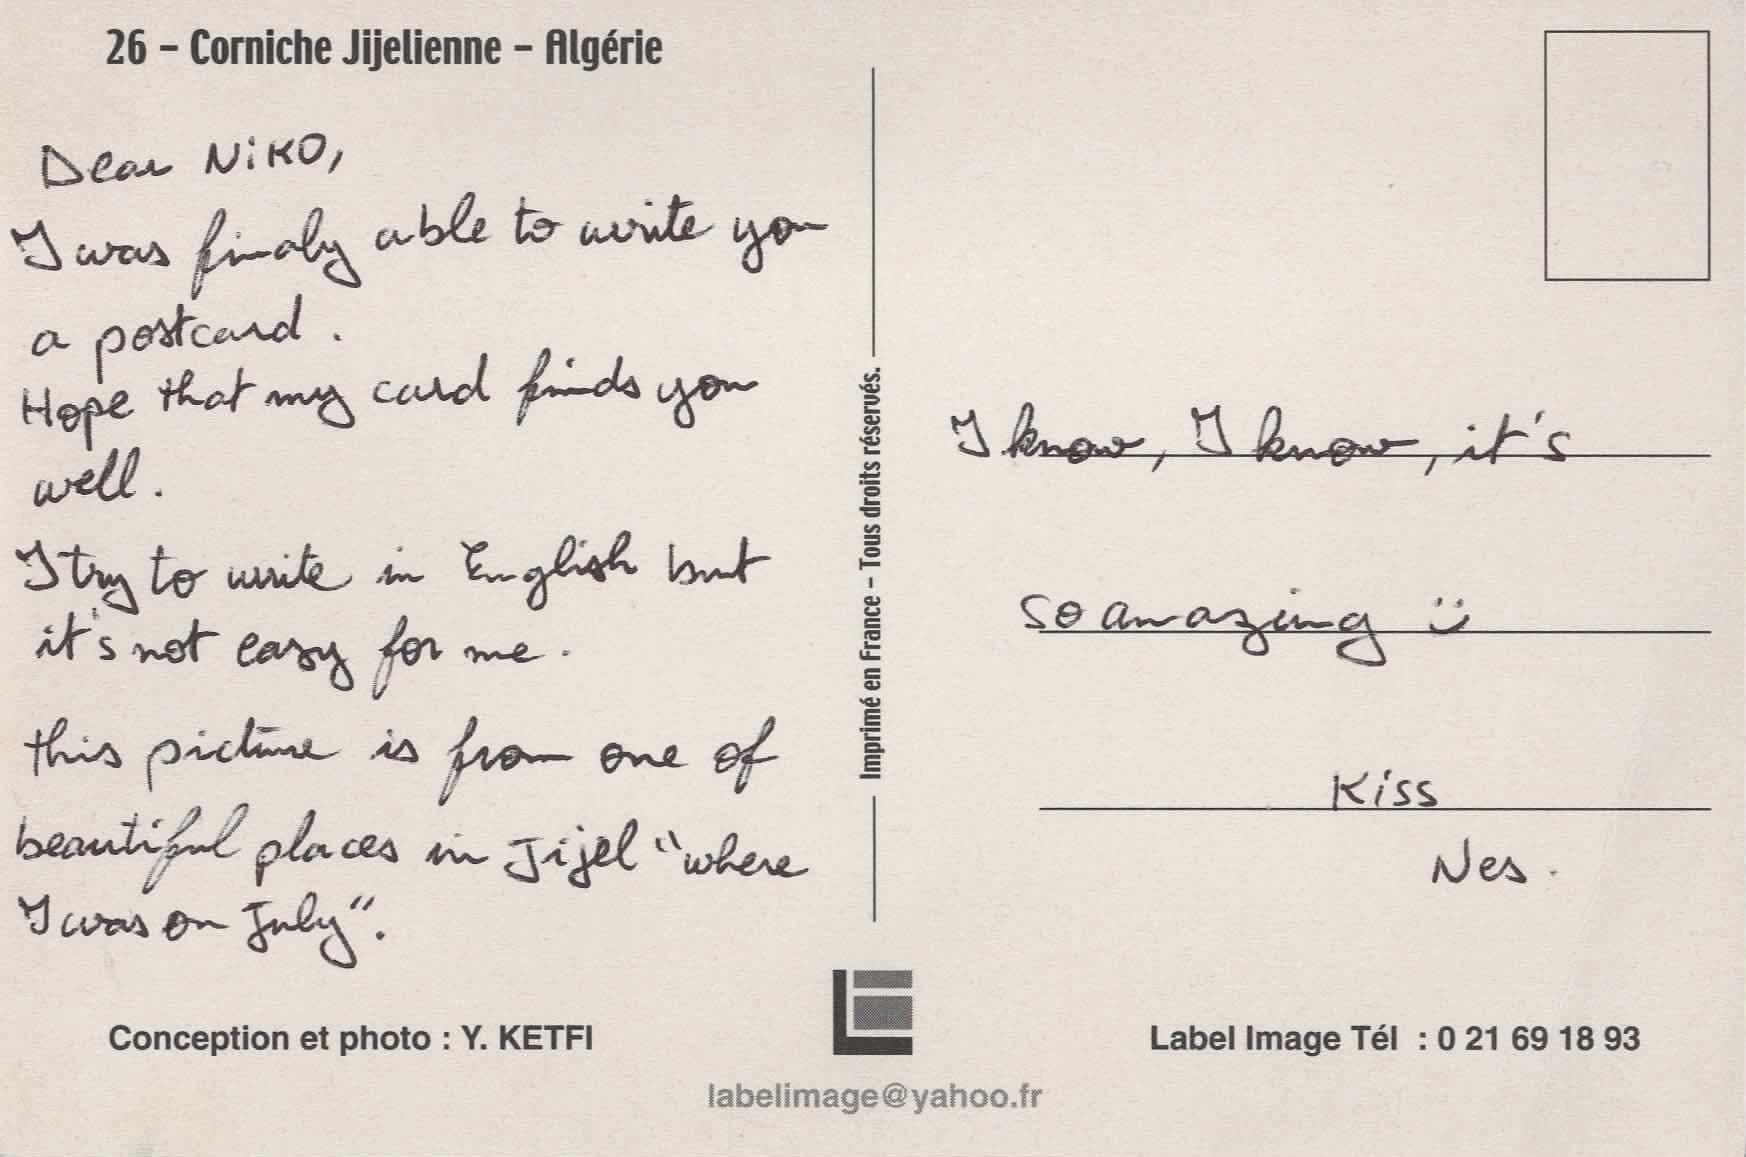 26 – Corniche Jijelienne – Algérie
Dear NiKO,
I was finaly able to write you
a postcard.
Hope that my card finds you
well.
I try to write in English but
it's not easy for me.
this picture is from one of
beautiful places in Jijel "where
I was on July".
Conception et photo : Y. KETFI
Imprimé en France – Tous droits réservés.
I know, I know, it's
so amazing :)
Kiss
Nes.
Label Image Tél : 0 21 69 18 93
labelimage@yahoo.fr